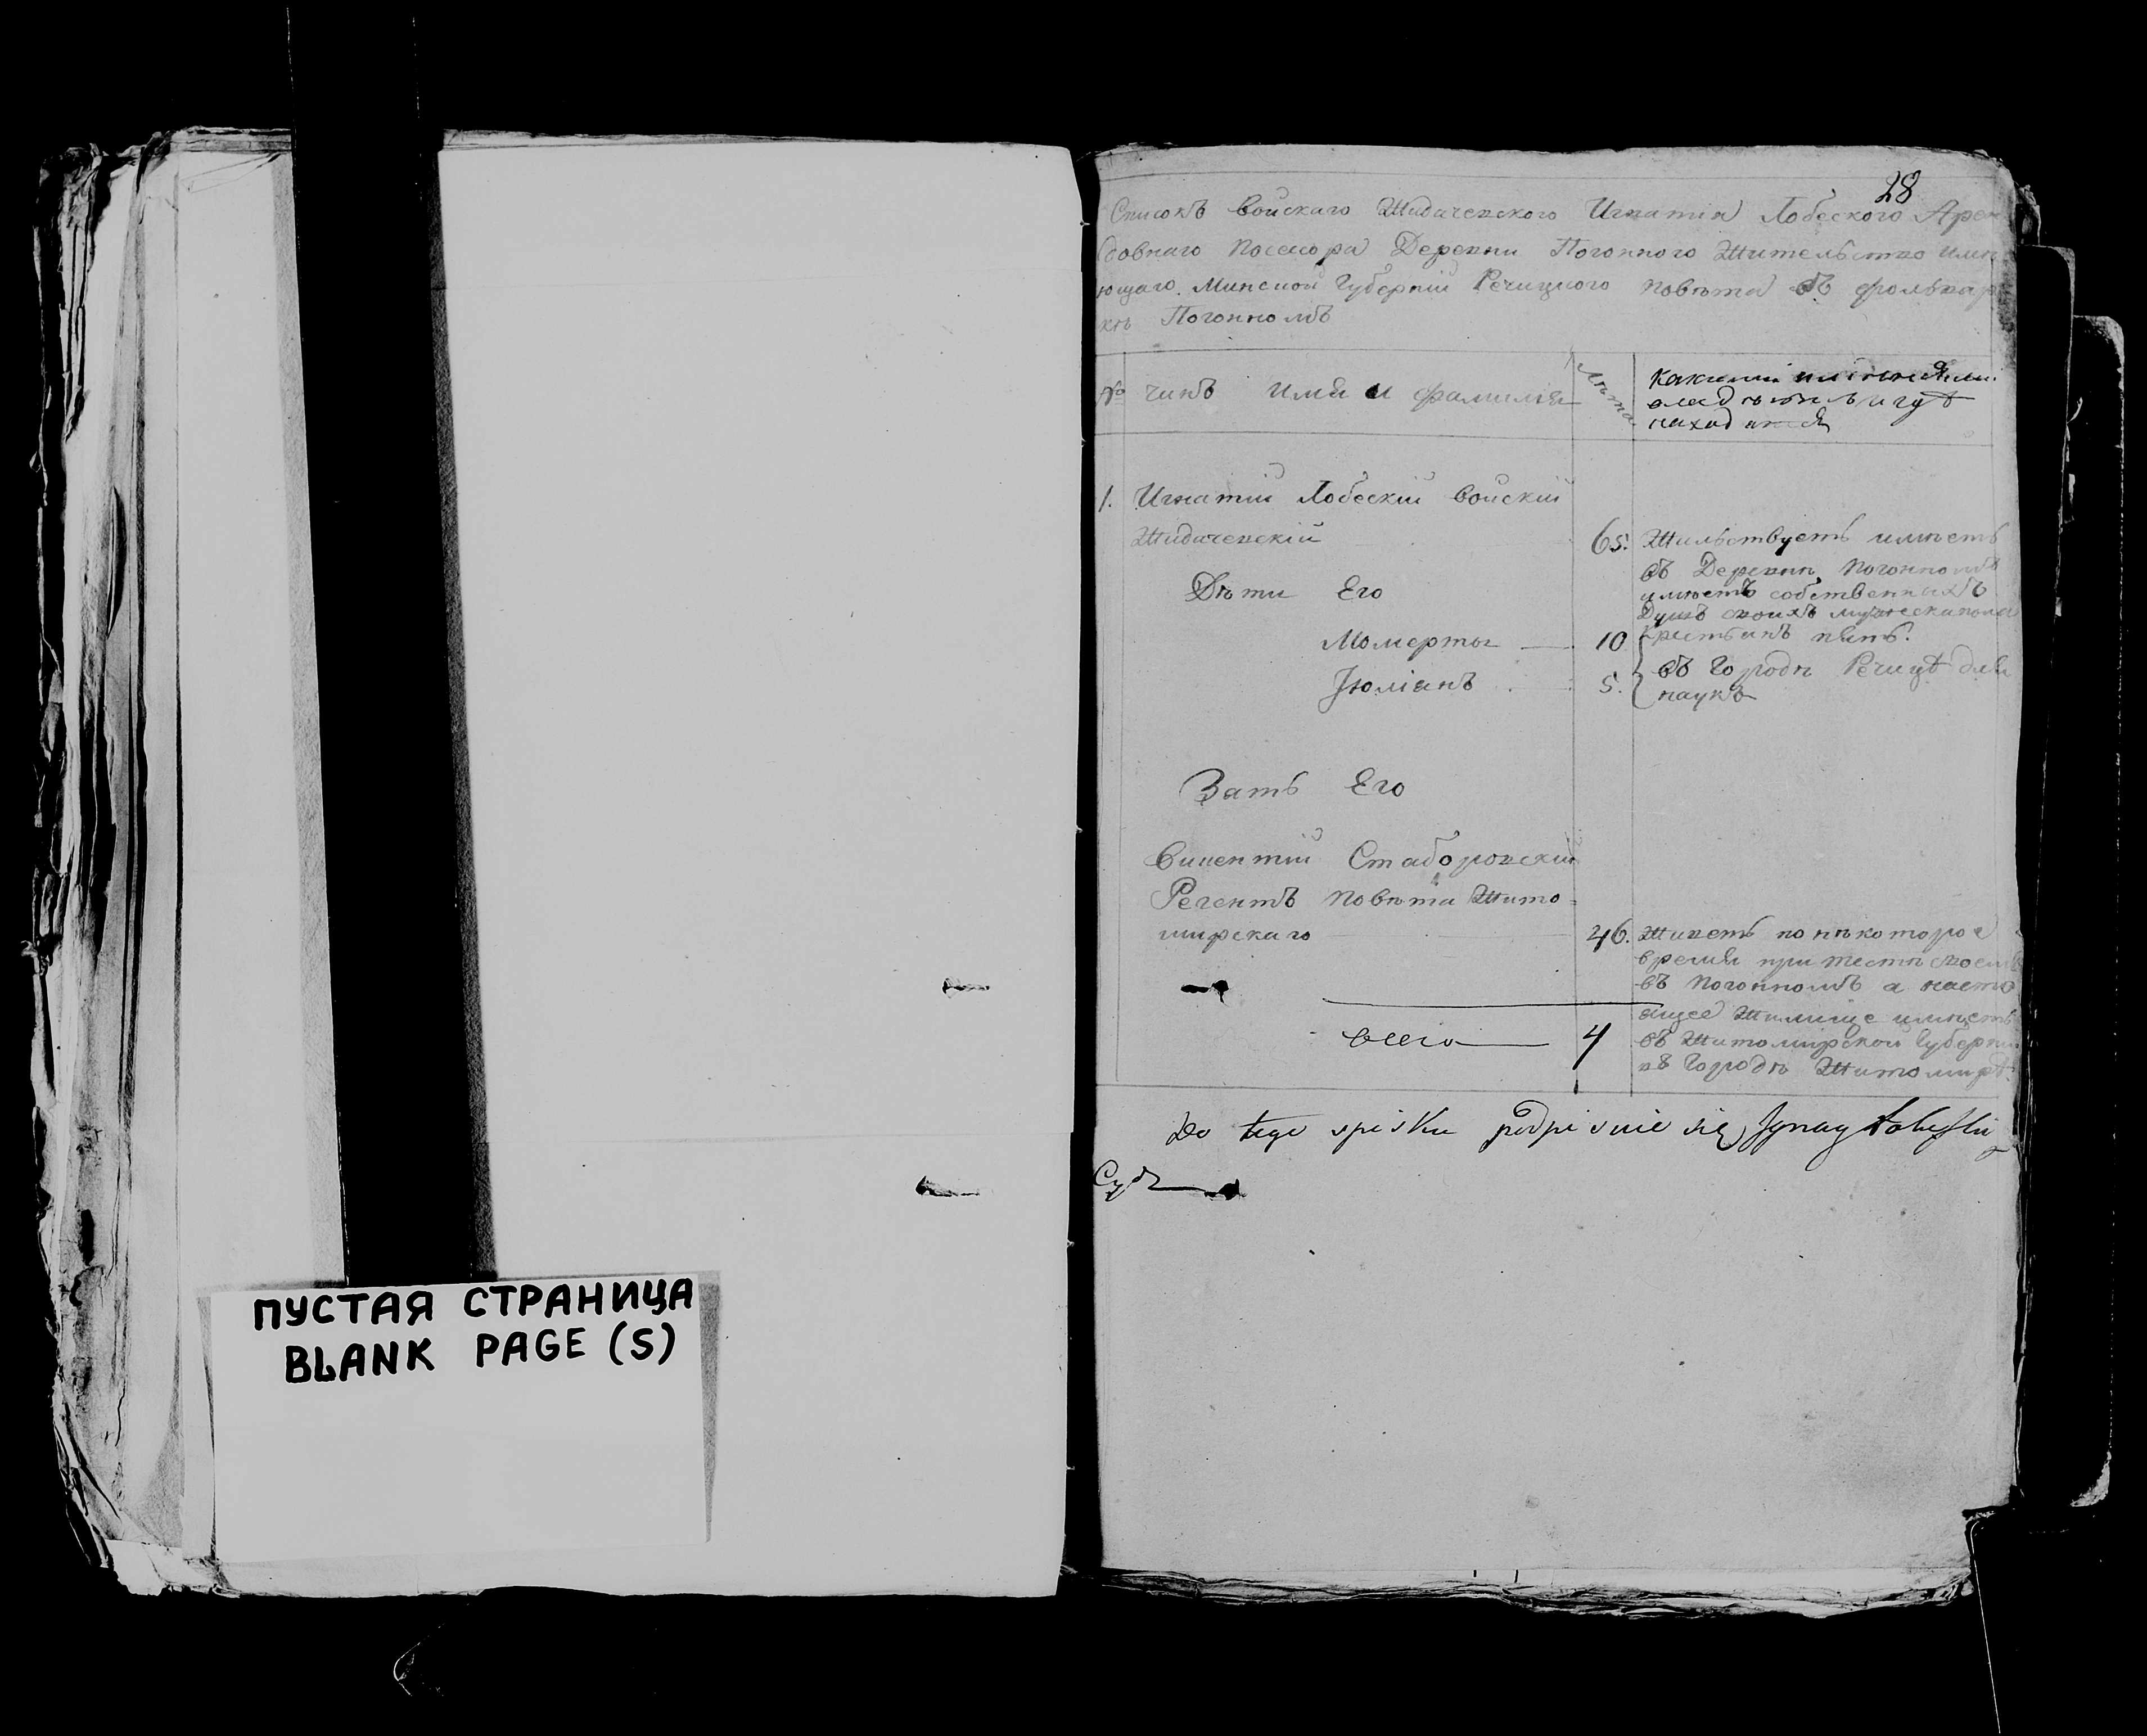 ПУСТАЯ СТРАНИЦА
BLANK PAGE (S)
28
Списокъ Войскаго Жидачевского Игнатія Лобеского Арен
довнаго Посессора Деревни Погонного Жительство имѣ
ющаго Минской Губерніи Речицкого Повѣта въ фольвар
кѣ Погонномъ
№ чинъ имя и фамилія
Лѣта
какими имѣніями
владѣютъ и гдѣ
находятся
1. Игнатій Лобескій Войскій
Жидачевскій 65. Жильствуетъ имѣетъ
въ Деревни Погонномъ
имѣетъ собственныхъ
Душъ своихъ мужескаполa
крестьянъ пять.
Дѣти Его
Момерты 10
Іюліанъ 5.
въ Городѣ Речицѣ для
наукъ
Зать Его
Викентій Стаборовскій
Регентъ Повѣта Жито=
мирскаго 46. Живетъ по нѣкоторое
время при тестѣ своемъ
въ Погонномъ а насто
ящее Жилище имѣетъ
въ Житомирской Губерніи
въ Городѣ Житомирѣ.
всего 4
Do tego spisku podpisuie się Ignacy Łobeski